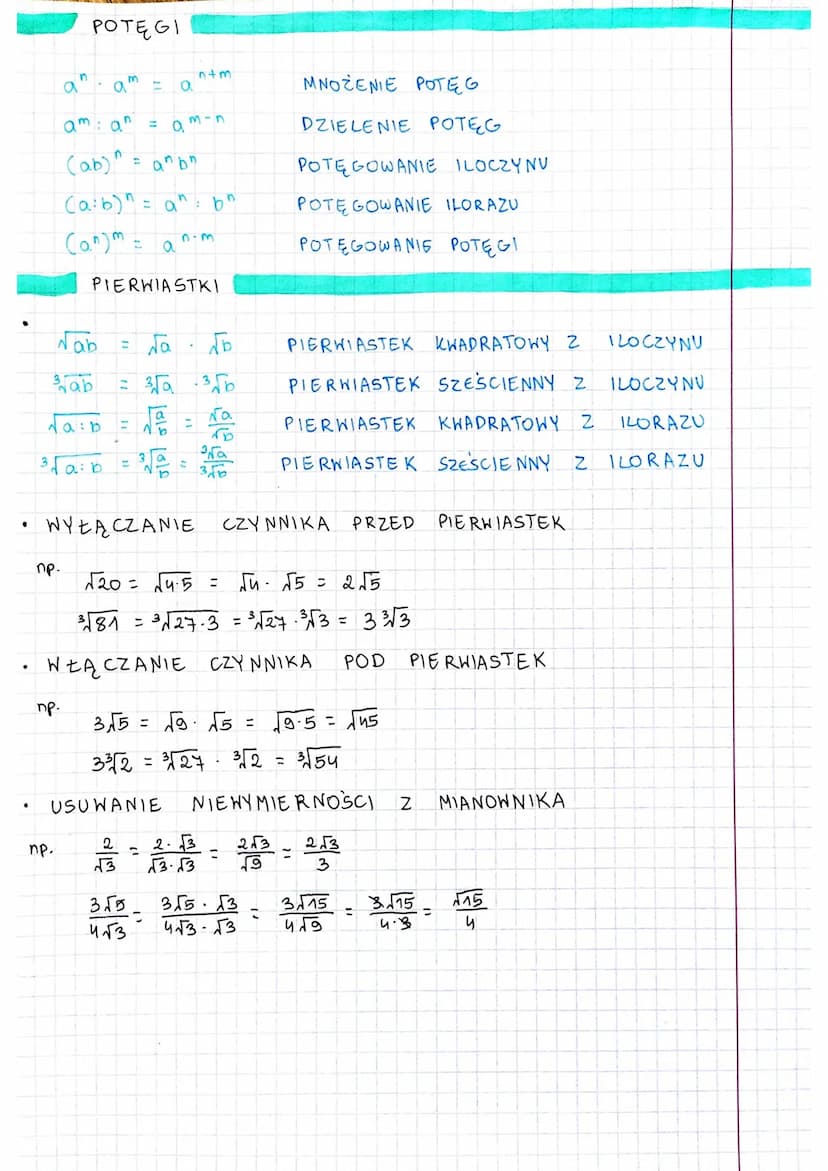 POTĘGI
aⁿ · aᵐ = aⁿ⁺ᵐ MNOŻENIE POTĘG
aᵐ : aⁿ = aᵐ⁻ⁿ DZIELENIE POTĘG
(ab)ⁿ = aⁿbⁿ POTĘGOWANIE ILOCZYNU
(a:b)ⁿ = aⁿ : bⁿ POTĘGOWANIE ILORAZU
(aⁿ)ᵐ = aⁿ·ᵐ POTĘGOWANIE POTĘGI
PIERWIASTKI
•
√(ab) = √a · √b PIERWIASTEK KWADRATOWY Z ILOCZYNU
∛(ab) = ∛a · ∛b PIERWIASTEK SZEŚCIENNY Z ILOCZYNU
√(a:b) = √(a/b) = √a/√b PIERWIASTEK KWADRATOWY Z ILORAZU
∛(a:b) = ∛(a/b) = ∛a/∛b PIERWIASTEK SZEŚCIENNY Z ILORAZU
• WYŁĄCZANIE CZYNNIKA PRZED PIERWIASTEK
np.
√20 = √(4·5) = √4 · √5 = 2√5
∛81 = ∛(27·3) = ∛27 · ∛3 = 3∛3
• WŁĄCZANIE CZYNNIKA POD PIERWIASTEK
np.
3√5 = √9 · √5 = √(9·5) = √45
3∛2 = ∛27 · ∛2 = ∛54
• USUWANIE NIEWYMIERNOŚCI Z MIANOWNIKA
np. 2/√3 = (2·√3)/(√3·√3) = 2√3/√9 = 2√3/3
3√5/4√3 = (3√5 · √3)/(4√3 · √3) = 3√15/4√9 = 3√15/4·3 = √15/4